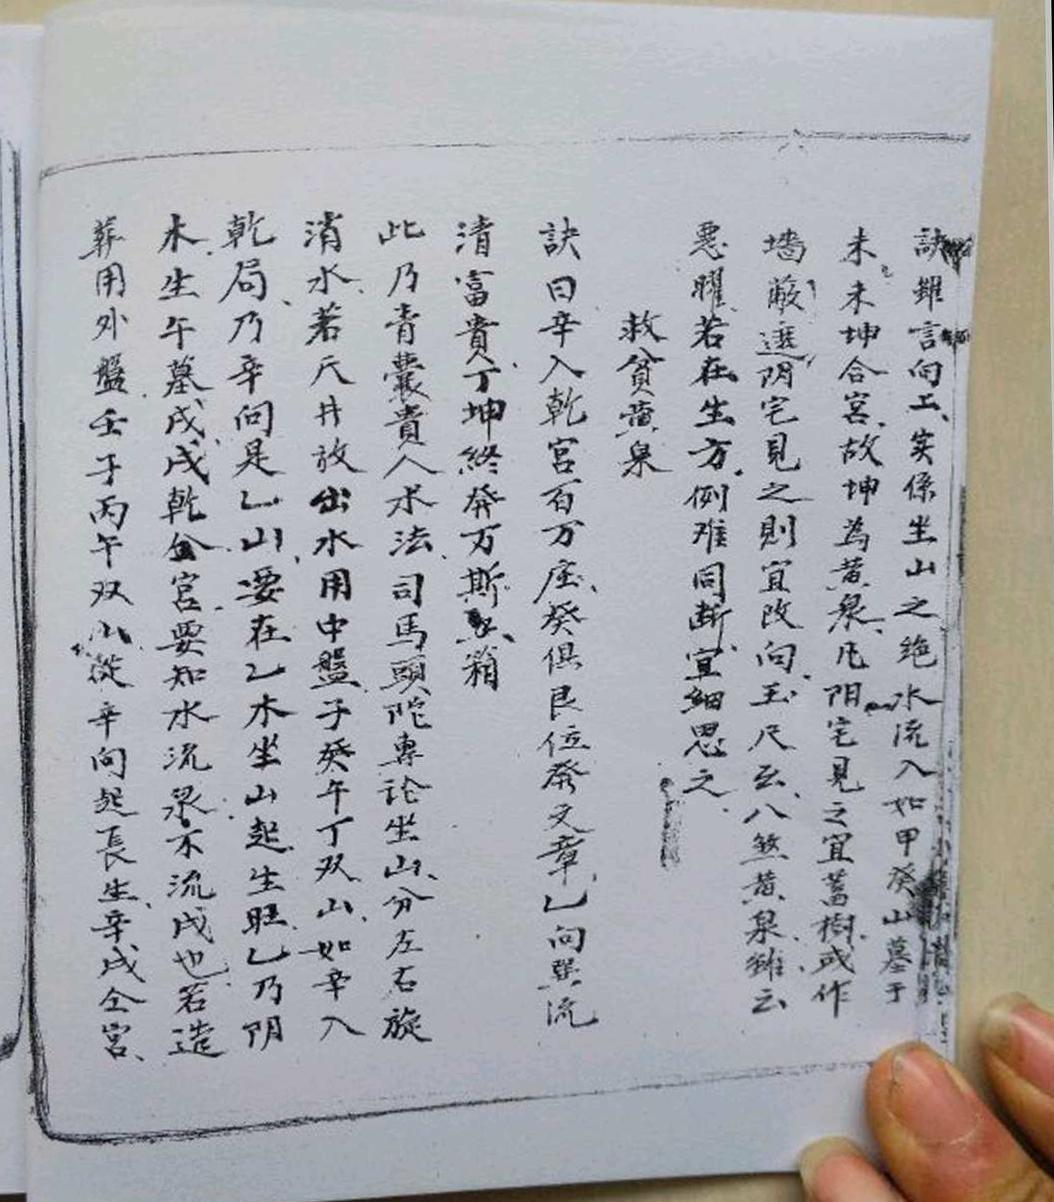 訣雖言向上、实係坐山之绝水流入如甲癸山墓于
未、未坤合宮、故坤為黄泉、凡阴宅見之宜蓄樹、或作
墙蔽遮、阴宅見之則宜改向、玉尺云、八煞黄泉、雖云
悪曜、若在生方、例难同断、宜細思之、
救貧黄泉
訣曰辛入乾宮百万庄、癸俱艮位發文章、乙向巽流
清富貴、丁坤終發万斯箱
此乃青囊貴人水法、司馬頭陀專論坐山、分左右旋
消水、若天井放出水用中盤子癸午丁双山、如辛入
乾局、乃辛向是乙山、要在乙木坐山起生旺、乙乃阴
木、生午墓戌、戌乾仝宮、要知水流泉不流戌也、若造
葬用外盤壬子丙午双山、從辛向起長生、辛戌仝宮、